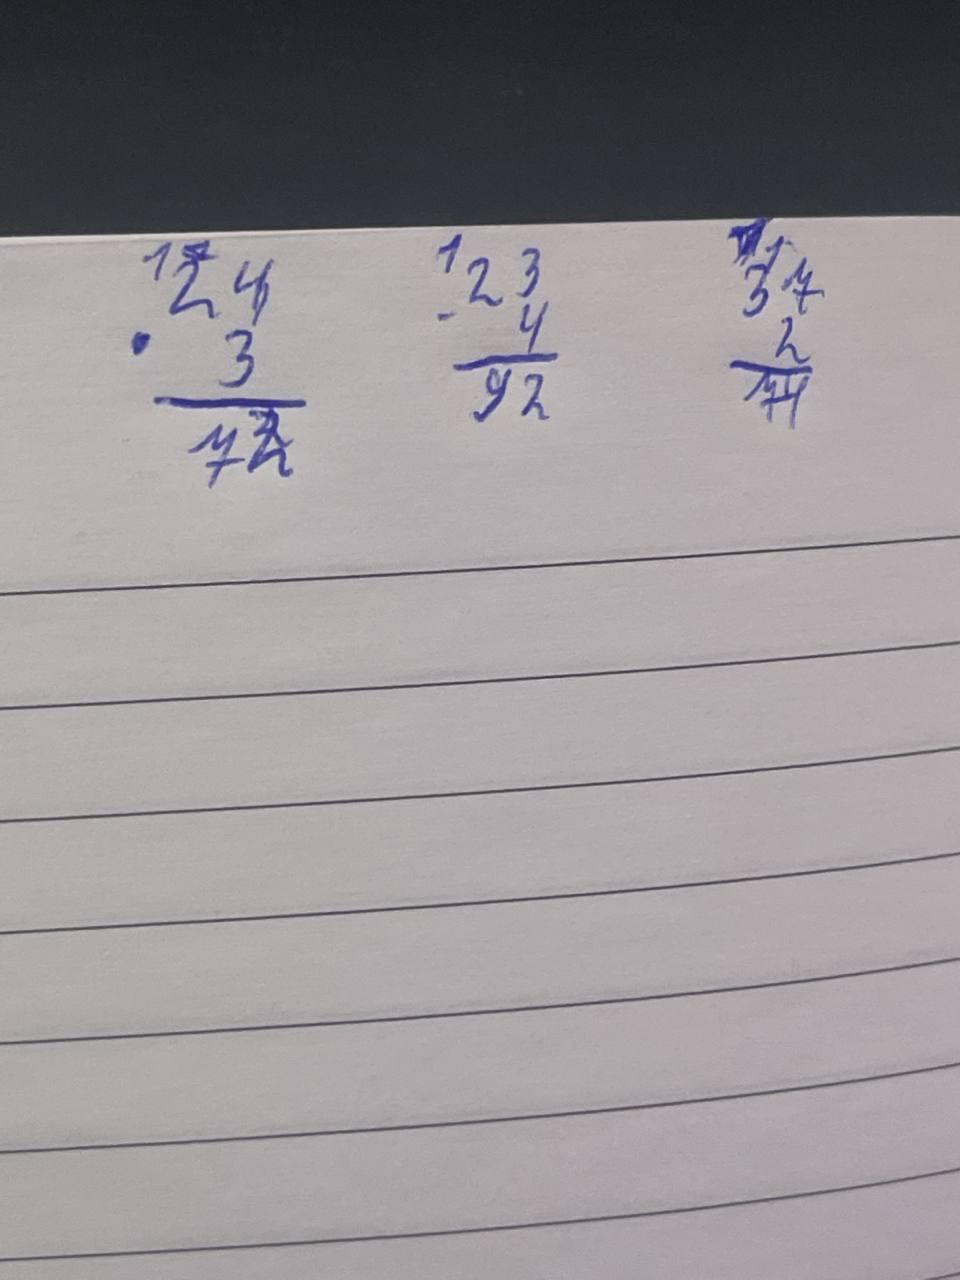 1 24
· 3
72
1 23
- 4
92
1
37
2
74